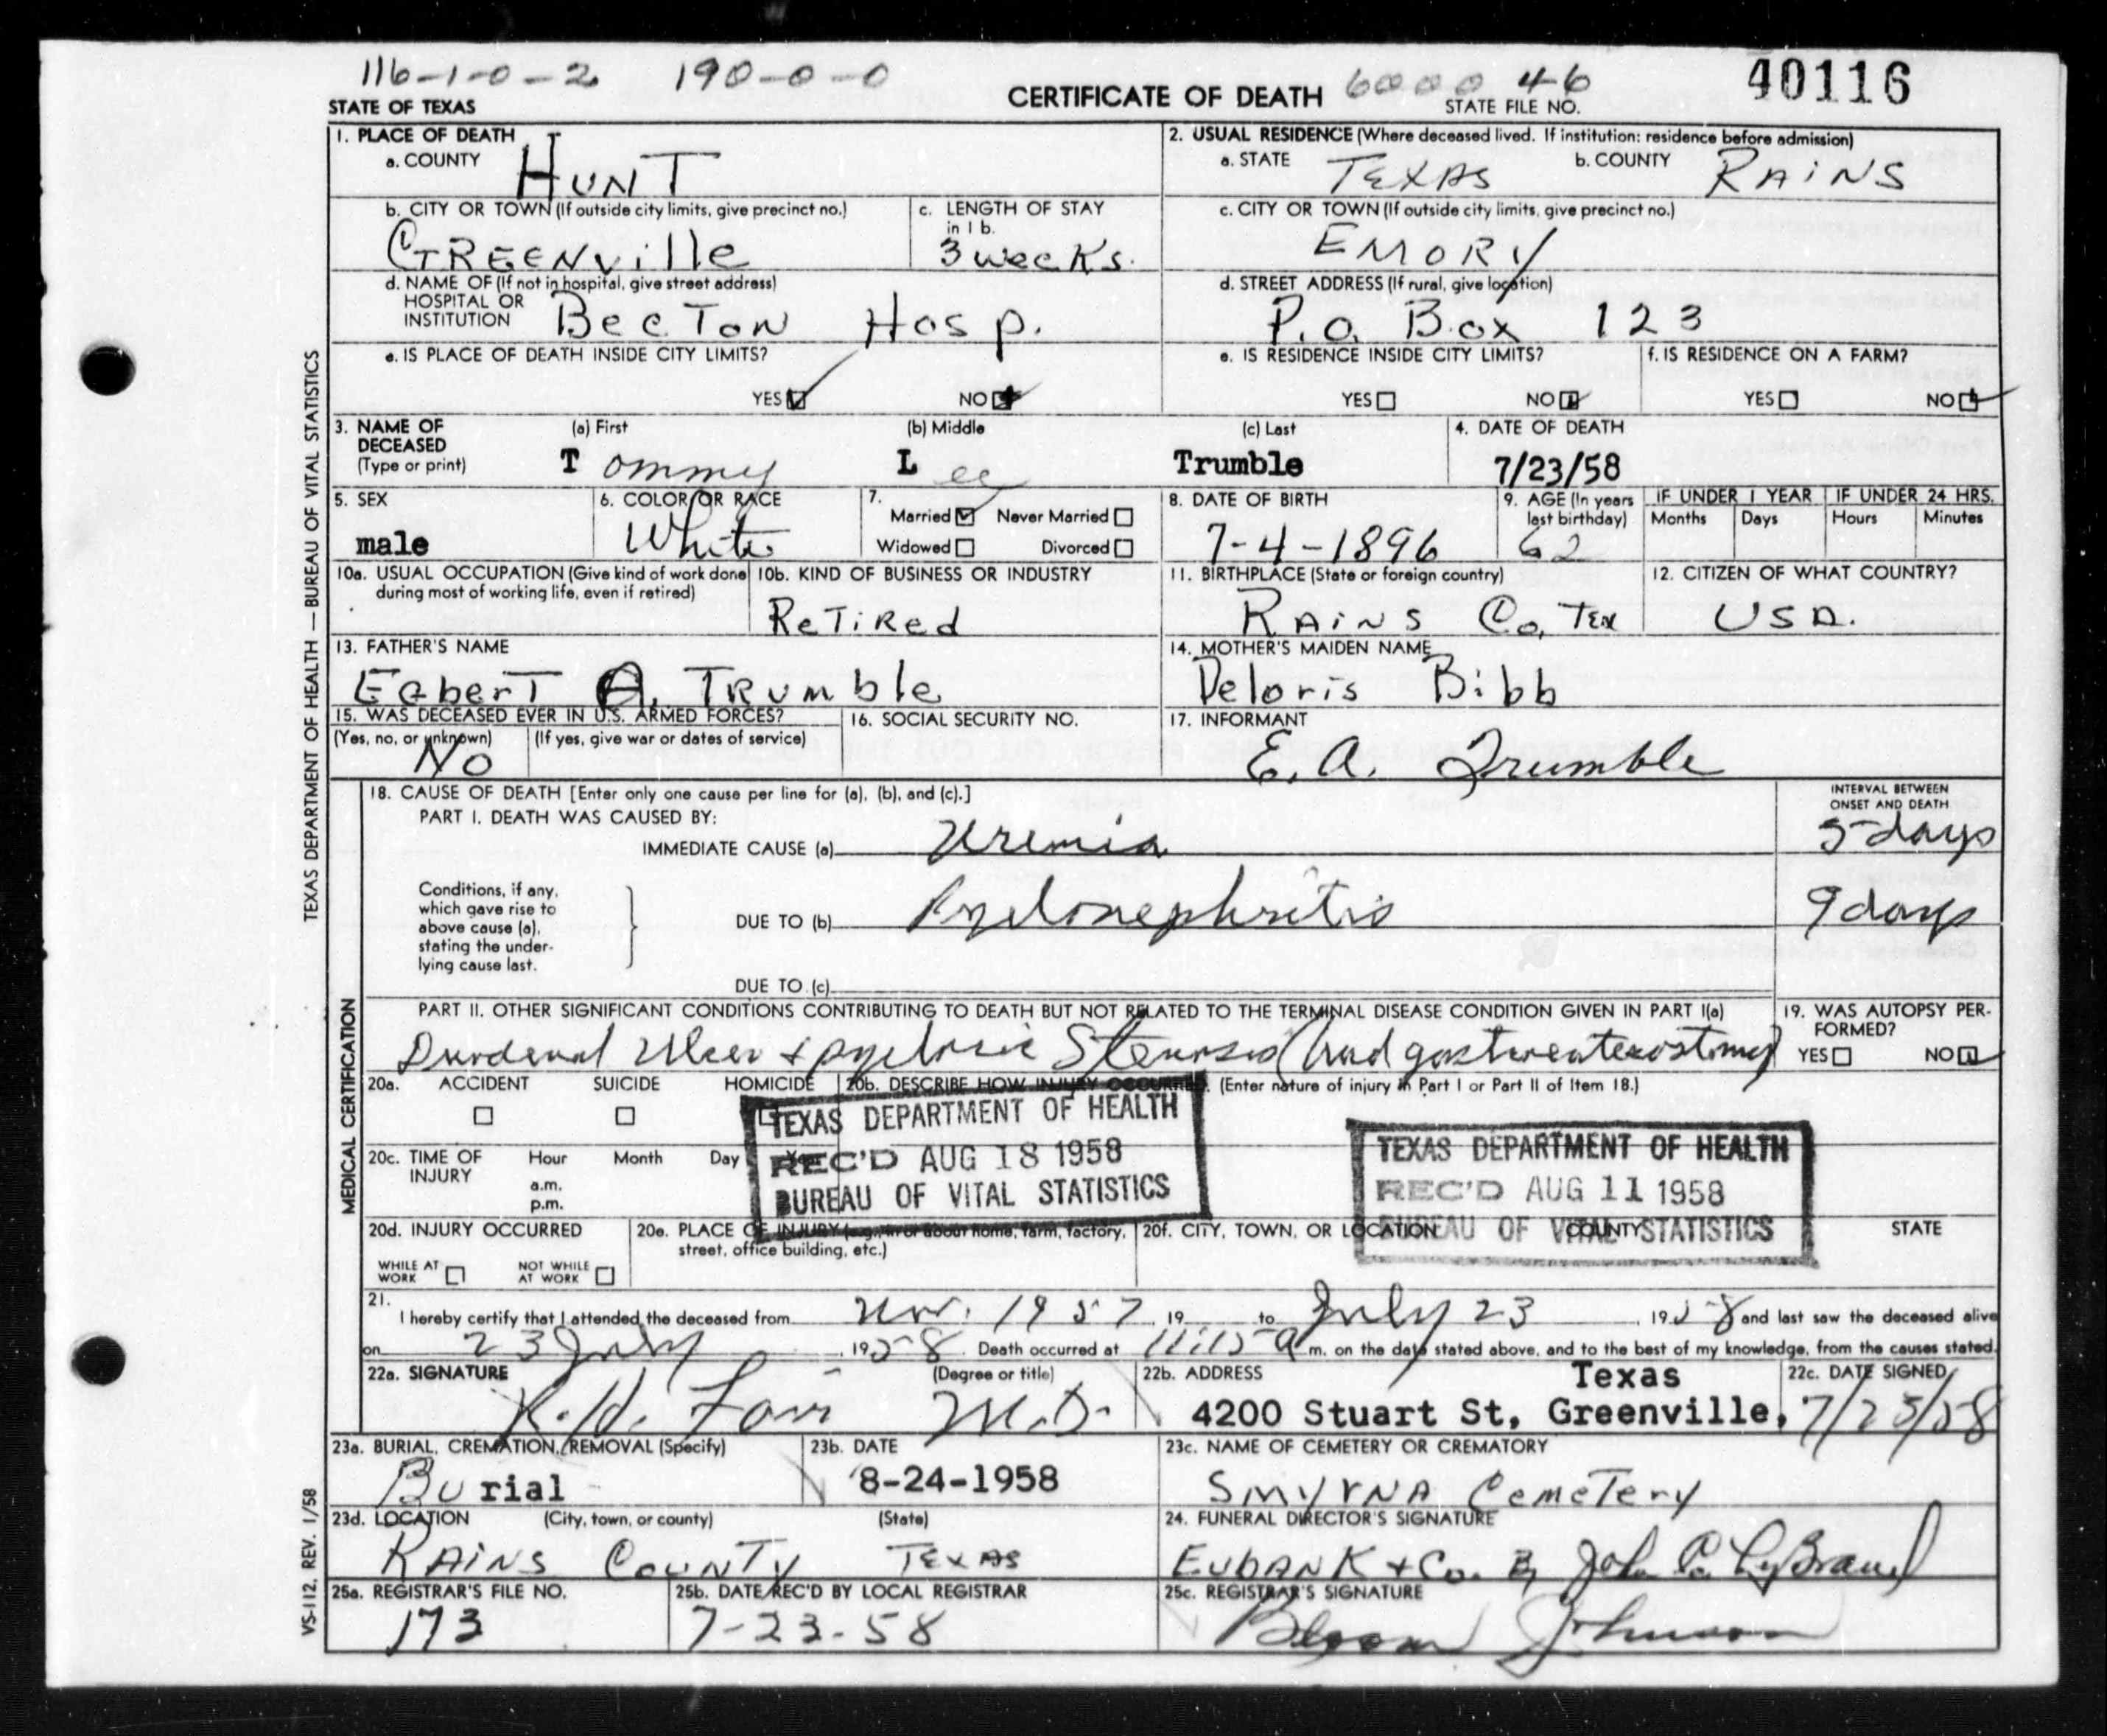 116-1-0-2 190-0-0
STATE OF TEXAS
CERTIFICATE OF DEATH
6000 46
STATE FILE NO.
40116
1. PLACE OF DEATH
a. COUNTY HUNT
2. USUAL RESIDENCE (Where deceased lived. If institution: residence before admission)
a. STATE TEXAS b. COUNTY RAINS
b. CITY OR TOWN (If outside city limits, give precinct no.)
GREENville
c. LENGTH OF STAY in 1 b.
3 weeKs.
c. CITY OR TOWN (If outside city limits, give precinct no.)
EMORY
d. NAME OF (If not in hospital, give street address)
HOSPITAL OR
INSTITUTION BecTon Hosp.
d. STREET ADDRESS (If rural, give location)
P.O. Box 123
e. IS PLACE OF DEATH INSIDE CITY LIMITS?
YES NO
e. IS RESIDENCE INSIDE CITY LIMITS?
YES NO
f. IS RESIDENCE ON A FARM?
YES NO
3. NAME OF DECEASED (Type or print)
(a) First (b) Middle (c) Last
Tommy Lee Trumble
4. DATE OF DEATH
7/23/58
5. SEX
male
6. COLOR OR RACE
White
7. Married Never Married
Widowed Divorced
8. DATE OF BIRTH
7-4-1896
9. AGE (In years last birthday)
62
IF UNDER 1 YEAR IF UNDER 24 HRS.
Months Days Hours Minutes
10a. USUAL OCCUPATION (Give kind of work done during most of working life, even if retired)
10b. KIND OF BUSINESS OR INDUSTRY
ReTiRed
11. BIRTHPLACE (State or foreign country)
RAiNS Co, Tex
12. CITIZEN OF WHAT COUNTRY?
USA.
13. FATHER'S NAME
EgberT A. TRumble
14. MOTHER'S MAIDEN NAME
Deloris Bibb
15. WAS DECEASED EVER IN U.S. ARMED FORCES?
(Yes, no, or unknown) (If yes, give war or dates of service)
No
16. SOCIAL SECURITY NO.
17. INFORMANT
E. A. Trumble
18. CAUSE OF DEATH [Enter only one cause per line for (a), (b), and (c).]
INTERVAL BETWEEN ONSET AND DEATH
PART I. DEATH WAS CAUSED BY:
IMMEDIATE CAUSE (a) Uremia 5 days
Conditions, if any, which gave rise to above cause (a), stating the underlying cause last.
DUE TO (b) Pyelonephritis 9 days
DUE TO (c)
PART II. OTHER SIGNIFICANT CONDITIONS CONTRIBUTING TO DEATH BUT NOT RELATED TO THE TERMINAL DISEASE CONDITION GIVEN IN PART I(a)
Duodenal Ulcer & pyloric Stenosis (had gastroenterostomy)
19. WAS AUTOPSY PERFORMED?
YES NO
20a. ACCIDENT SUICIDE HOMICIDE
20b. DESCRIBE HOW INJURY OCCURRED. (Enter nature of injury in Part I or Part II of Item 18.)
TEXAS DEPARTMENT OF HEALTH
REC'D AUG 18 1958
BUREAU OF VITAL STATISTICS
TEXAS DEPARTMENT OF HEALTH
REC'D AUG 11 1958
BUREAU OF VITAL STATISTICS
20c. TIME OF INJURY Hour Month Day Year
a.m.
p.m.
20d. INJURY OCCURRED
WHILE AT WORK NOT WHILE AT WORK
20e. PLACE OF INJURY (e.g., in or about home, farm, factory, street, office building, etc.)
20f. CITY, TOWN, OR LOCATION COUNTY STATE
21. I hereby certify that I attended the deceased from Nov. 1957, 19 to July 23, 1958 and last saw the deceased alive
on 23 July, 1958. Death occurred at 11:15 a m. on the date stated above, and to the best of my knowledge, from the causes stated.
22a. SIGNATURE (Degree or title)
M.D.
22b. ADDRESS
Texas
4200 Stuart St, Greenville,
22c. DATE SIGNED
7/25/58
23a. BURIAL, CREMATION, REMOVAL (Specify)
Burial
23b. DATE
8-24-1958
23c. NAME OF CEMETERY OR CREMATORY
SMYRNA CemeTery
23d. LOCATION (City, town, or county) (State)
RAiNS COUNTY TEXAS
24. FUNERAL DIRECTOR'S SIGNATURE
EUBANK + Co. By John C. LyBrand
25a. REGISTRAR'S FILE NO.
173
25b. DATE REC'D BY LOCAL REGISTRAR
7-23-58
25c. REGISTRAR'S SIGNATURE
Johnson
TEXAS DEPARTMENT OF HEALTH — BUREAU OF VITAL STATISTICS
MEDICAL CERTIFICATION
VS-112, REV. 1/58